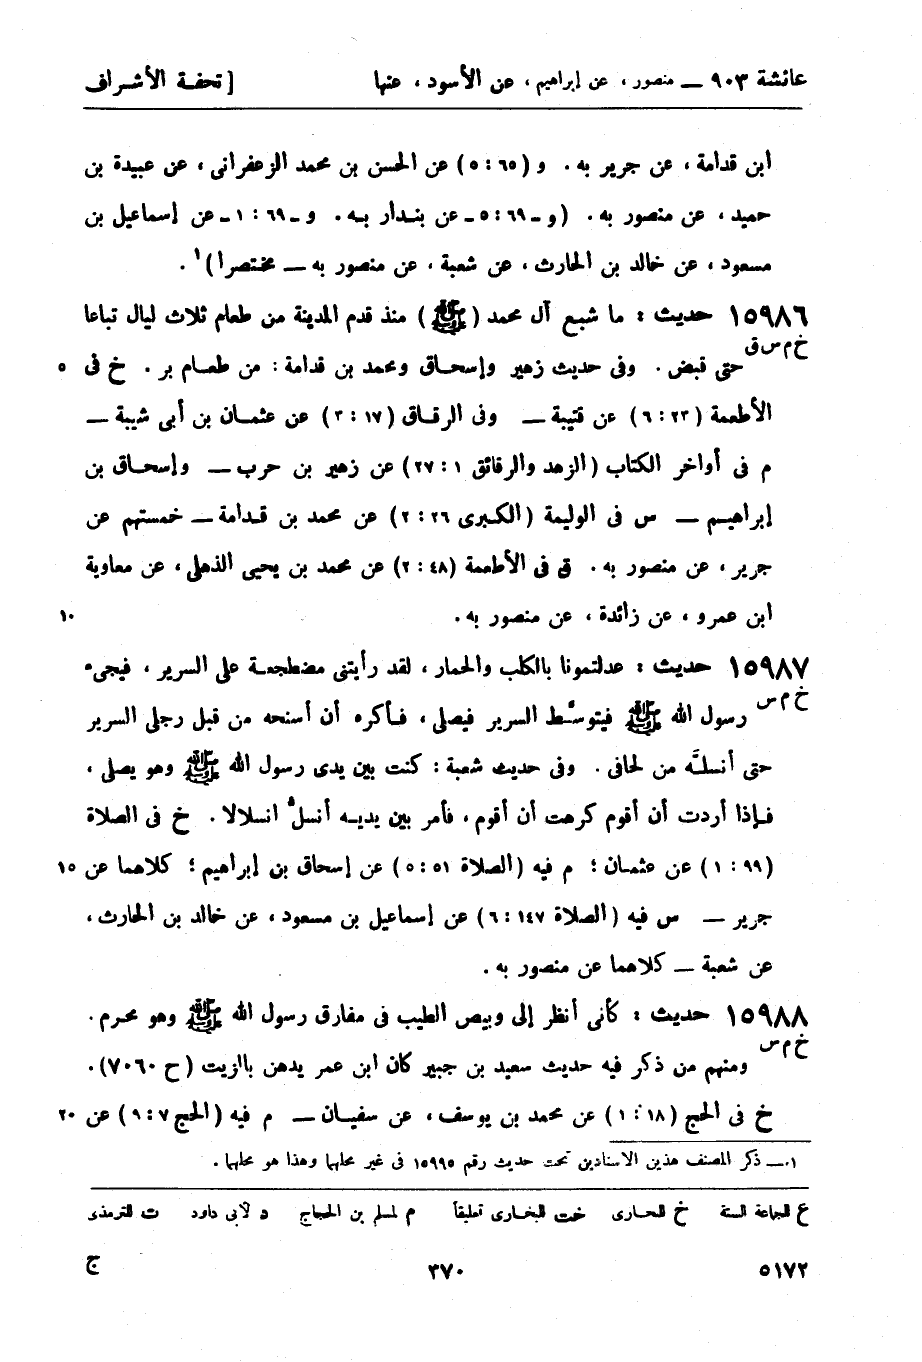 عائشة ٩٠٣ ــ منصور ، عن إبراهيم ، عن الأسود ، عنها [ تحفة الأشراف
ابن قدامة ، عن جرير به . و (٦٥ : ٥) عن الحسن بن محمد الزعفرانى ، عن عبيدة بن
حميد ، عن منصور به . (و ـ ٦٩ : ٥ـ عن بندار به . و ـ ٦٩ : ١ ـ عن إسماعيل بن
مسعود ، عن خالد بن الحارث ، عن شعبة ، عن منصور به ــ مختصرا)١ .
١٥٩٨٦ حديث : ما شبع آل محمد (ﷺ) منذ قدم المدينة من طعام ثلاث ليال تباعا
خ م س ق حتى قبض . وفى حديث زهير وإسحاق ومحمد بن قدامة : من طعام بر . خ فى ٥
الأطعمة (٢٣ : ٦) عن قتيبة ــ وفى الرقاق (١٧ : ٣) عن عثمان بن أبى شيبة ــ
م فى أواخر الكتاب (الزهد والرقائق ١ : ٢٧) عن زهير بن حرب ــ وإسحاق بن
إبراهيم ــ س فى الوليمة (الكبرى ٢٦ : ٢) عن محمد بن قدامة ــ خمستهم عن
جرير ، عن منصور به . ق فى الأطعمة (٤٨ : ٢) عن محمد بن يحيى الذهلى ، عن معاوية
ابن عمرو ، عن زائدة ، عن منصور به . ١٠
١٥٩٨٧ حديث : عدلتمونا بالكلب والحمار ، لقد رأيتنى مضطجعة على السرير ، فيجىء
خ م س رسول الله ﷺ فيتوسَّط السرير فيصلى ، فأكره أن أسنحه من قبل رجلى السرير
حتى أنسلَّه من لحافى . وفى حديث شعبة : كنت بين يدى رسول الله ﷺ وهو يصلى ،
فإذا أردت أن أقوم كرهت أن أقوم ، فأمر بين يديه أنسلّ انسلالا . خ فى الصلاة
(٩٩ : ١) عن عثمان ؛ م فيه (الصلاة ٥١ : ٥) عن إسحاق بن إبراهيم ؛ كلاهما عن ١٥
جرير ــ س فيه (الصلاة ١٤٧ : ٦) عن إسماعيل بن مسعود ، عن خالد بن الحارث ،
عن شعبة ــ كلاهما عن منصور به .
١٥٩٨٨ حديث : كأنى أنظر إلى وبيص الطيب فى مفارق رسول الله ﷺ وهو محرم .
خ م س ومنهم من ذكر فيه حديث سعيد بن جبير كان ابن عمر يدهن بالزيت (ح ٧٠٦٠) .
خ فى الحج (١٨ : ١) عن محمد بن يوسف ، عن سفيان ــ م فيه (الحج ٧ : ٩) عن ٢٠
١ــ ذكر المصنف هذين الاسنادين تحت حديث رقم ١٥٩٩٥ فى غير محلها وهذا هو محلها .
ع للجماعة الستة خ للحارى خت للبخارى تعليقاً م لمسلم بن الحجاج د لأبى داود ت للترمذى
٥١٧٢ ٣٧٠ ج